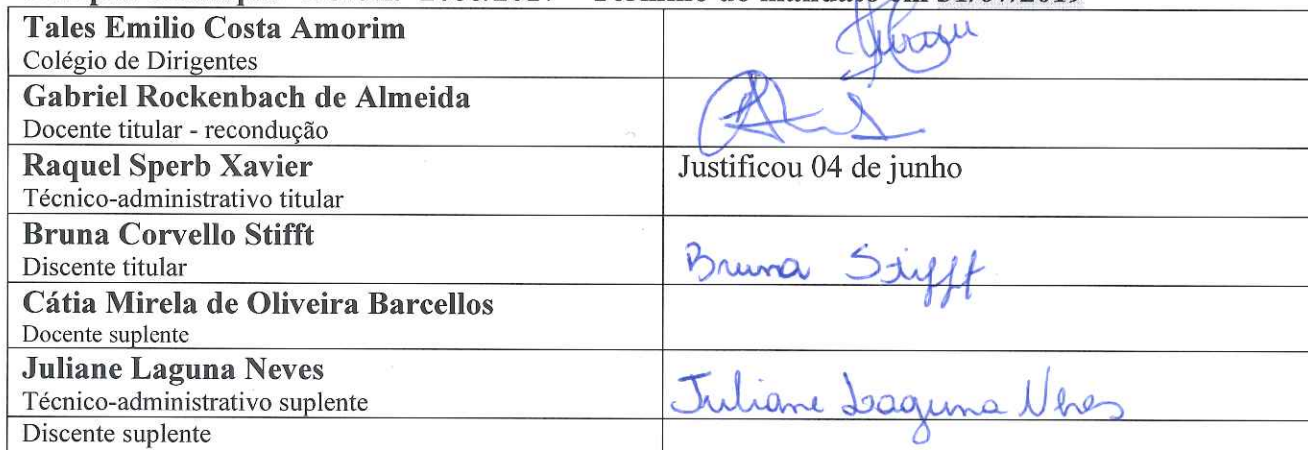 Término do mandato em 31/07/2019
Tales Emilio Costa Amorim
Colégio de Dirigentes
Gabriel Rockenbach de Almeida
Docente titular - recondução
Raquel Sperb Xavier
Justificou 04 de junho
Técnico-administrativo titular
Bruna Corvello Stifft
Discente titular
Bruna Stifft
Cátia Mirela de Oliveira Barcellos
Docente suplente
Juliane Laguna Neves
Técnico-administrativo suplente
Juliane Laguna Neves
Discente suplente